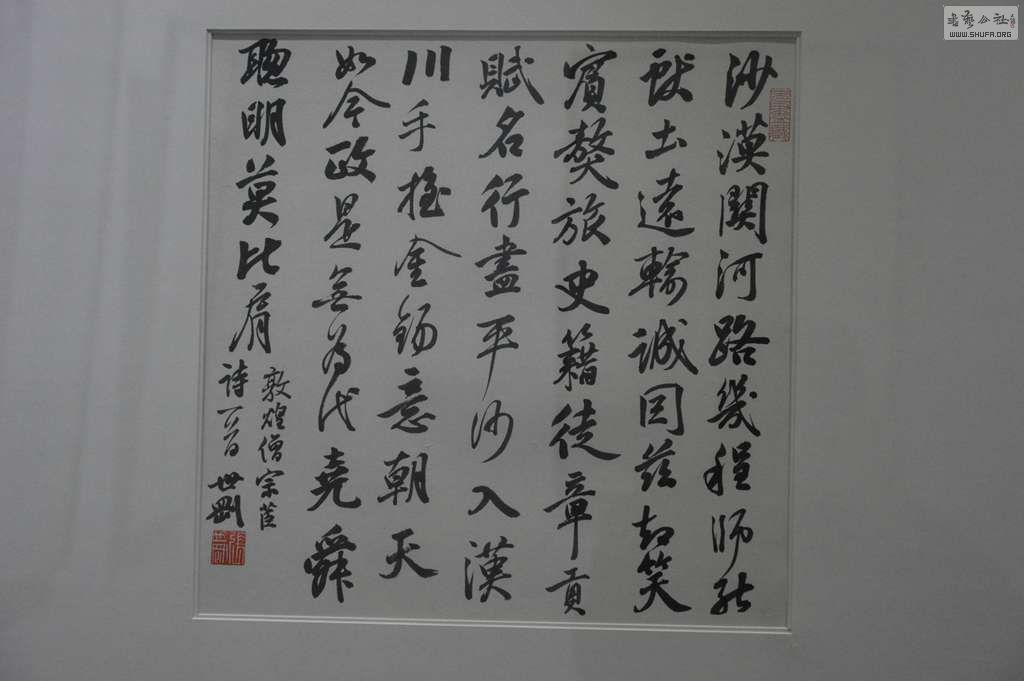 沙漠關河路幾程師能
獻土遠輸誠因茲却笑
賓獒旅史籍徒章貢
賦名行盡平沙入漢
川手握金錫意朝天
如今政是無為代堯舜
聰明莫比肩
敦煌僧宗茝
詩一首世剛
WWW.SHUFA.ORG